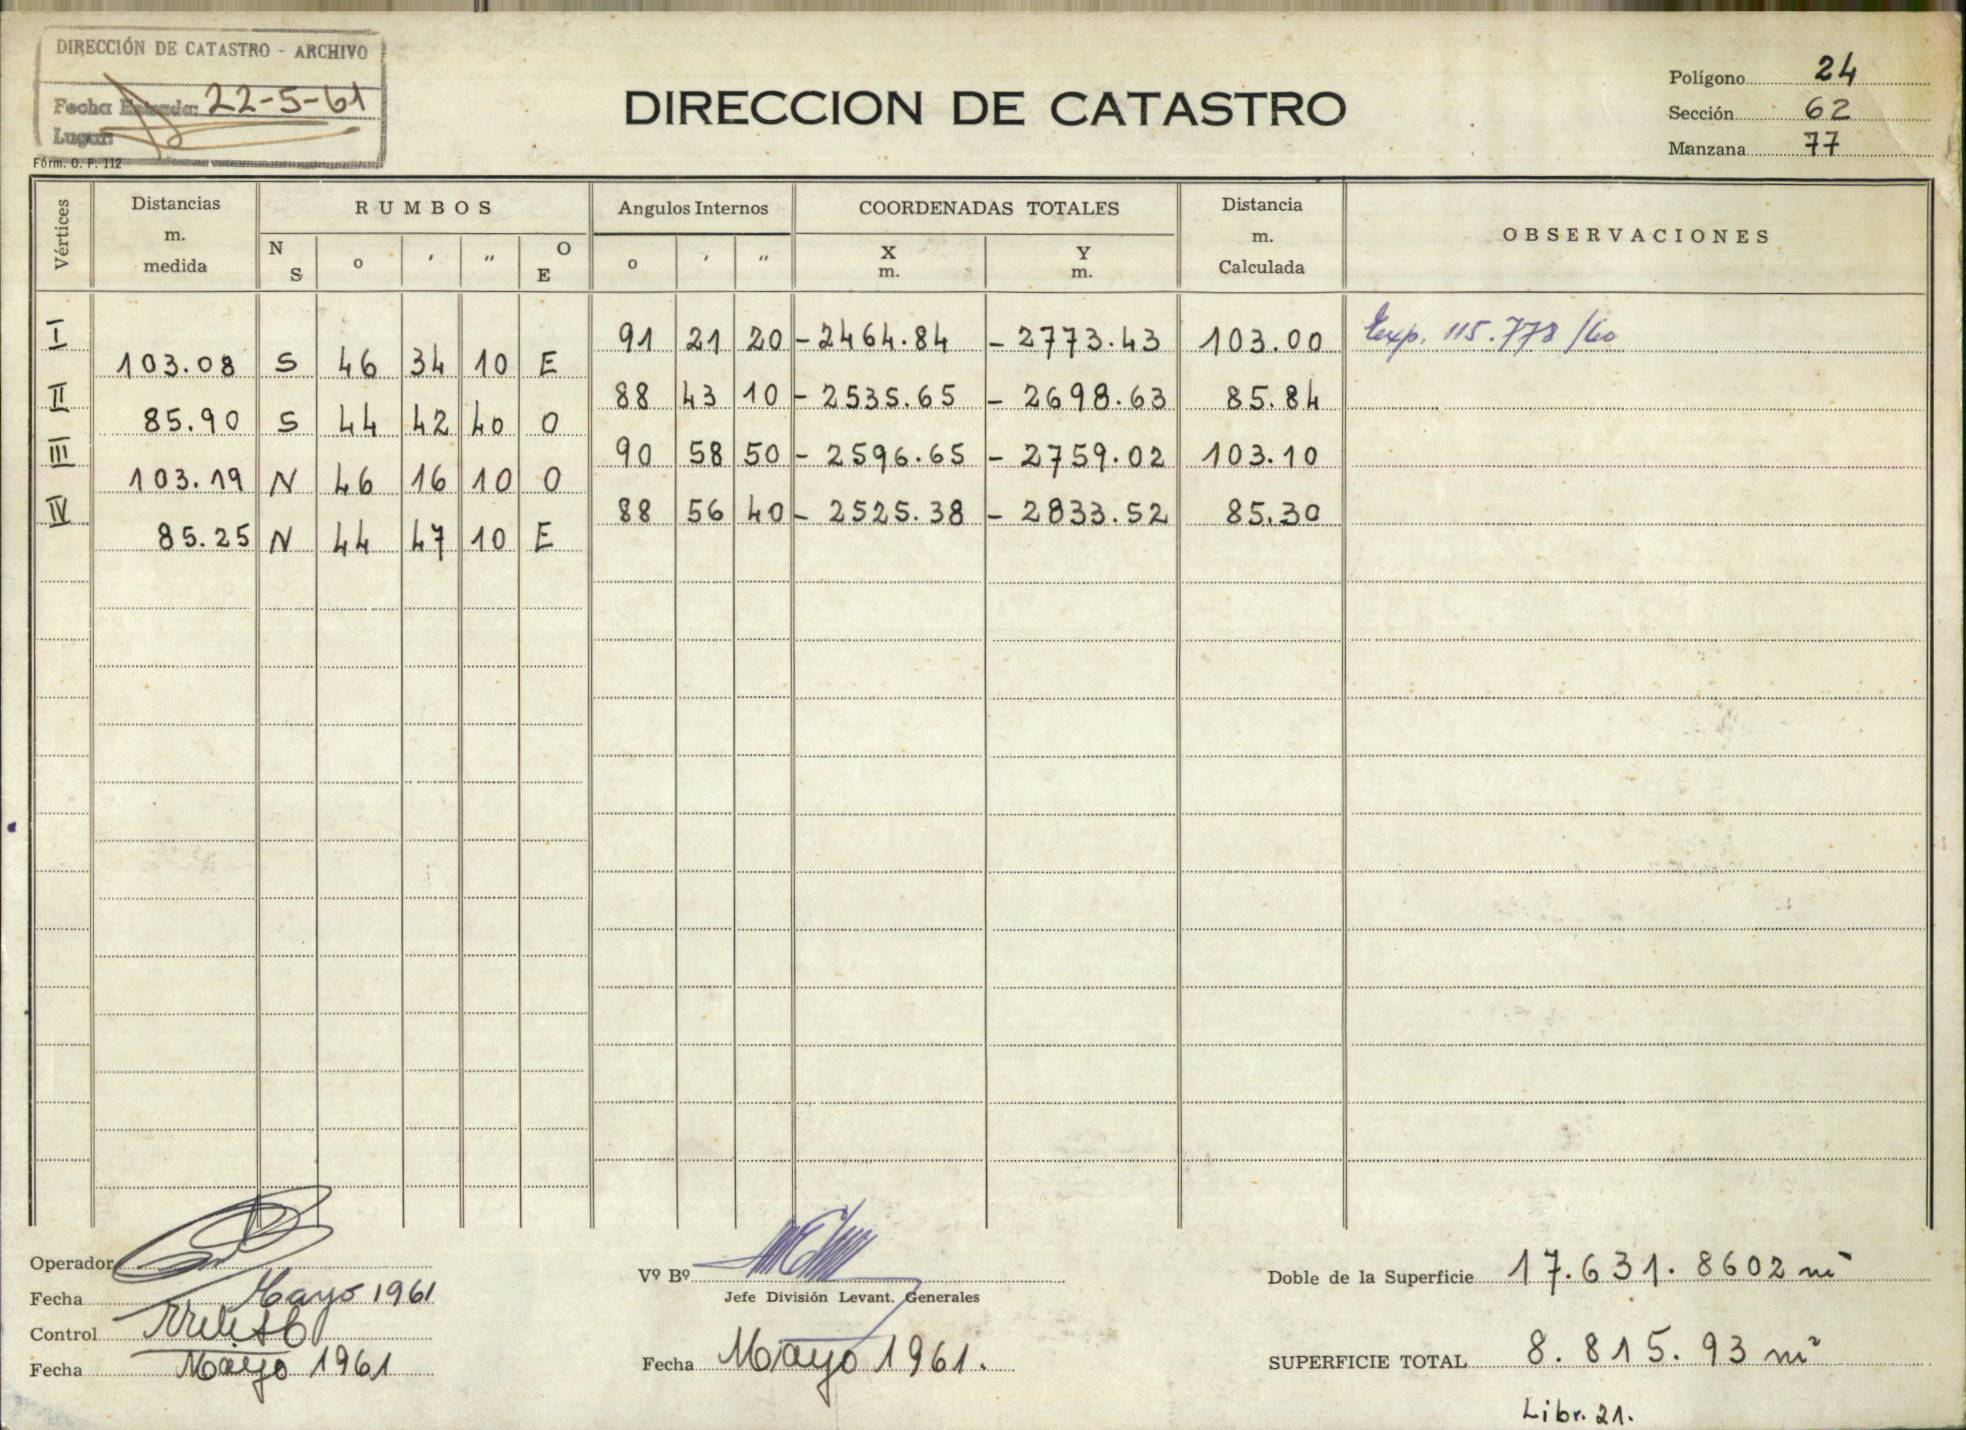 DIRECCIÓN DE CATASTRO - ARCHIVO
Fecha Entrada: 22-5-61
Lugar:
Fórm. O. P. 112
DIRECCION DE CATASTRO
Polígono 24
Sección 62
Manzana 77
Vértices
Distancias m. medida
RUMBOS
N S o ′ ″ O E
Angulos Internos
o ′ ″
COORDENADAS TOTALES
X m. Y m.
Distancia m. Calculada
OBSERVACIONES
I 91 21 20 - 2464.84 - 2773.43 103.00 Exp. 115.778/60
103.08 S 46 34 10 E
II 88 43 10 - 2535.65 - 2698.63 85.84
85.90 S 44 42 40 O
III 90 58 50 - 2596.65 - 2759.02 103.10
103.19 N 46 16 10 O
IV 88 56 40 - 2525.38 - 2833.52 85.30
85.25 N 44 47 10 E
Operador
Fecha Mayo 1961
Control
Fecha Mayo 1961
Vº Bº
Jefe División Levant. Generales
Fecha Mayo 1961.
Doble de la Superficie 17.631.8602 m²
SUPERFICIE TOTAL 8.815.93 m²
Libr. 21.